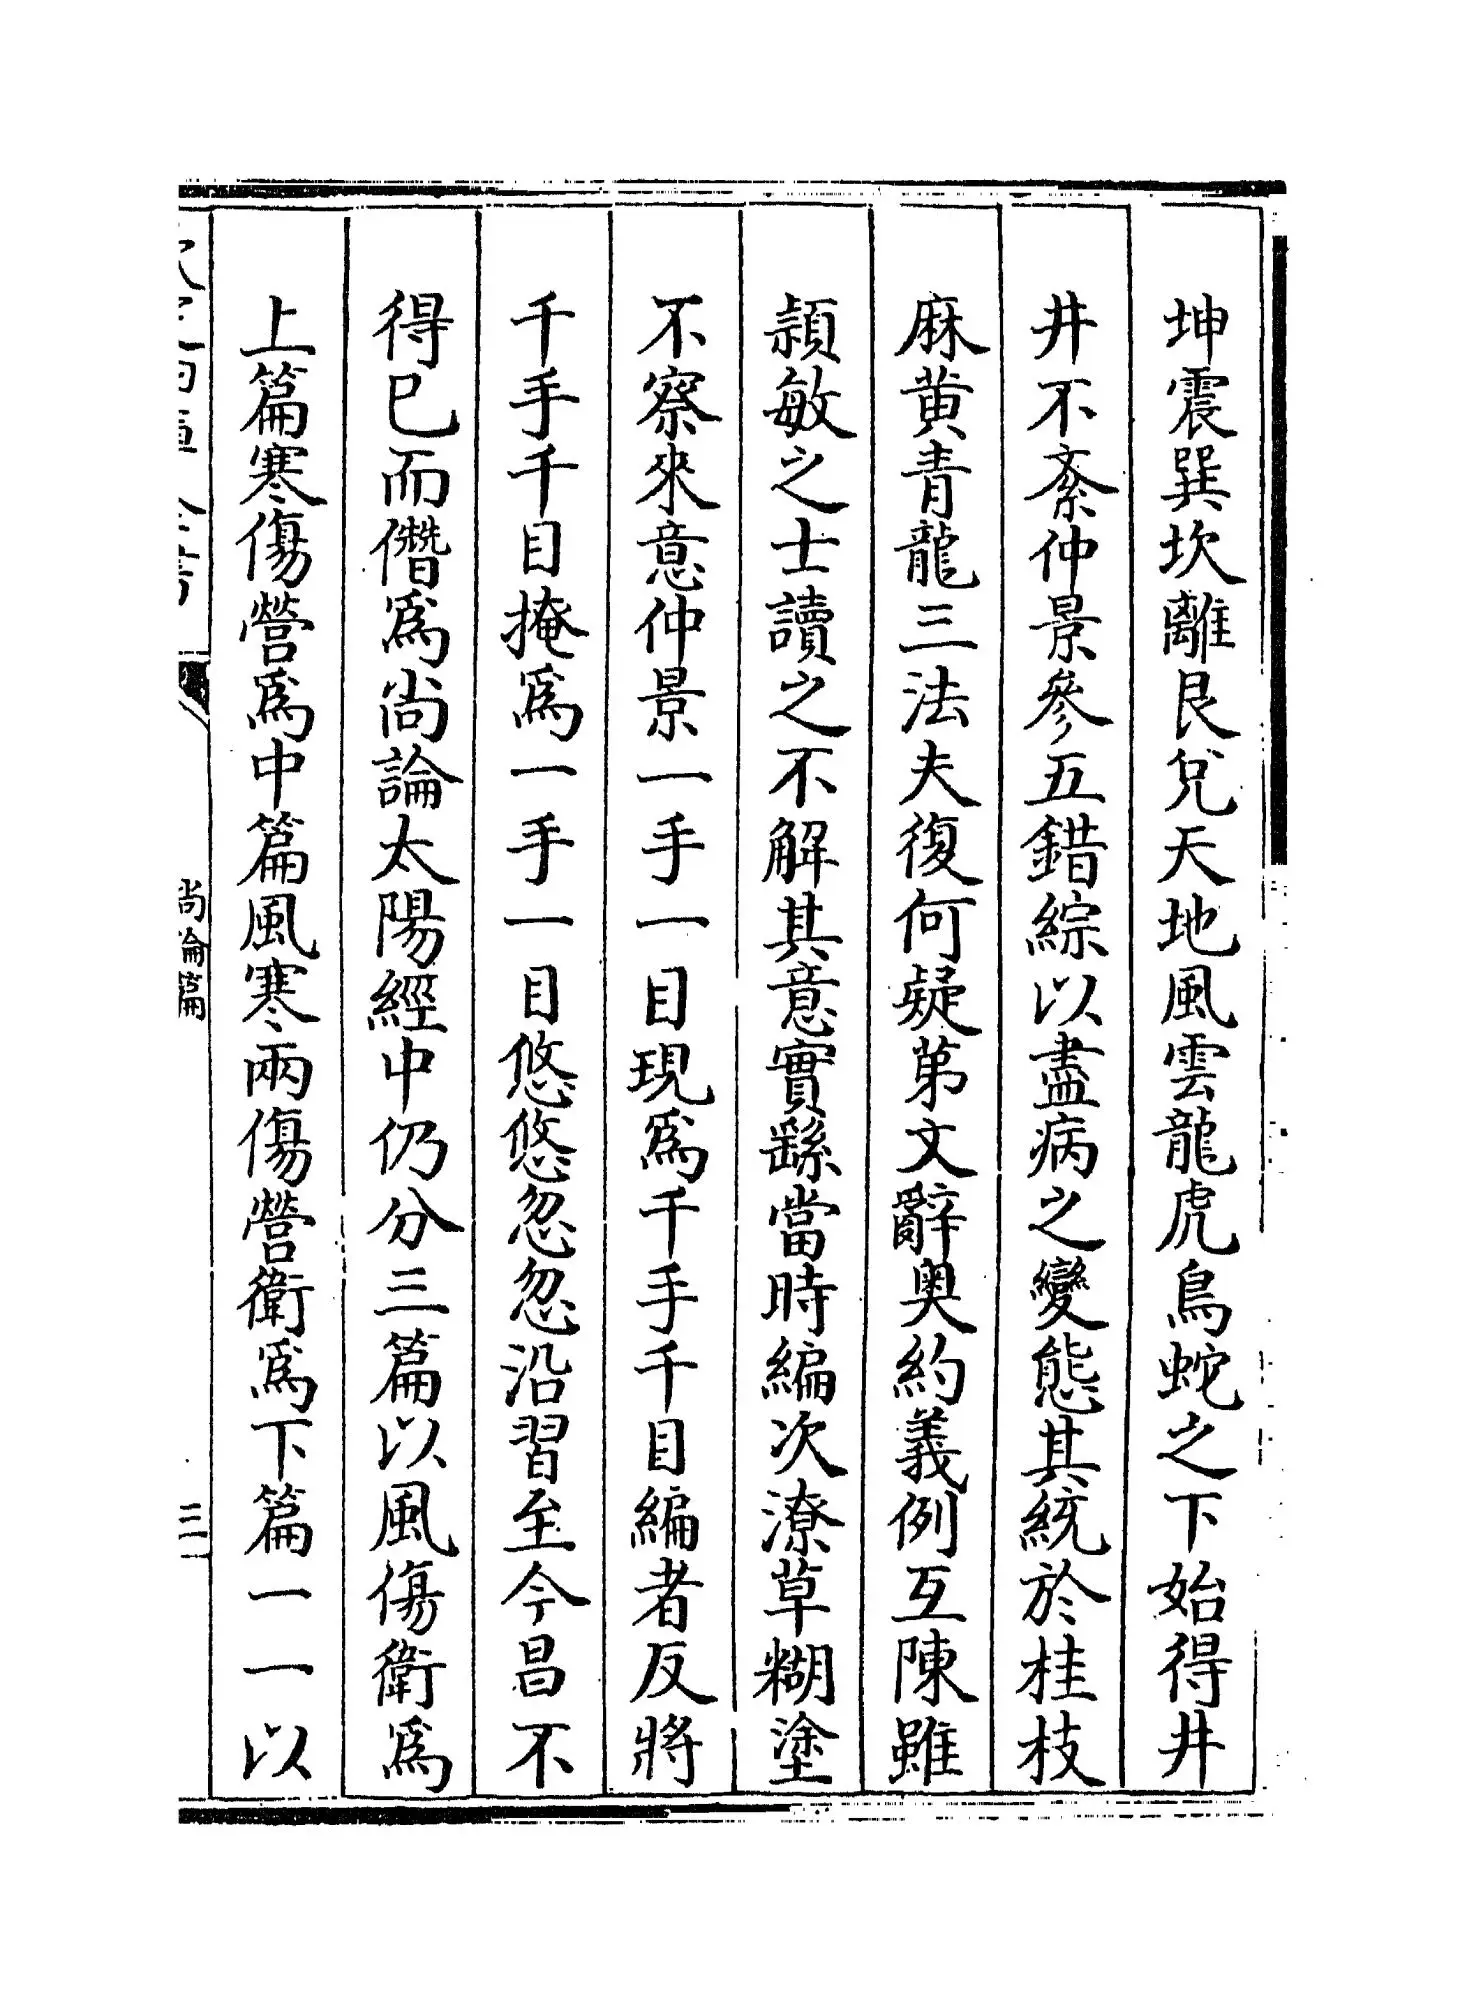 坤震巽坎離艮兌天地風雲龍虎鳥蛇之下始得井
井不紊仲景參五錯綜以盡病之變態其統於桂枝
麻黃青龍三法夫復何疑第文辭奧約義例互陳雖
頴敏之士讀之不解其意實繇當時編次潦草糊塗
不察來意仲景一手一目現爲千手千目編者反將
千手千目掩爲一手一目悠悠忽忽沿習至今昌不
得已而僭爲尚論太陽經中仍分三篇以風傷衛爲
上篇寒傷營爲中篇風寒兩傷營衛爲下篇一一以
尚論篇
三